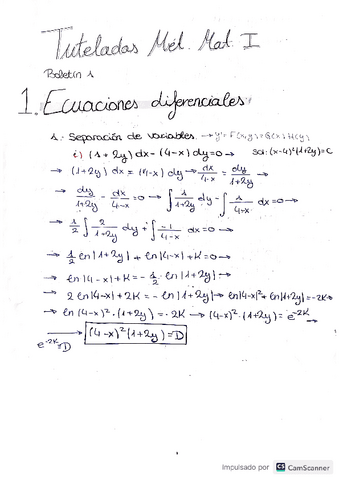 Tuteladas Mét. Mat. I
Boletín 1
1. Ecuaciones diferenciales
1.- Separación de variables. → y' = F(x,y) = G(x)·H(y)
i) (1+2y) dx - (4-x) dy = 0 → sol: (x-4)²(1+2y) = C
→ (1+2y) dx = (4-x) dy → dx/4-x = dy/1+2y →
→ dy/1+2y - dx/4-x = 0 → ∫ 1/1+2y dy - ∫ 1/4-x dx = 0 →
→ 1/2 ∫ 2/1+2y dy + ∫ -1/4-x dx = 0 →
→ 1/2 ln|1+2y| + ln|4-x| + K = 0 →
→ ln|4-x| + K = -1/2 ln|1+2y| →
→ 2 ln|4-x| + 2K = - ln|1+2y| → ln|4-x|² + ln|1+2y| = -2K →
→ ln (4-x)² · (1+2y) = -2K → (4-x)² · (1+2y) = e^-2K →
e^-2K = D → (4-x)² (1+2y) = D
Impulsado por CS CamScanner